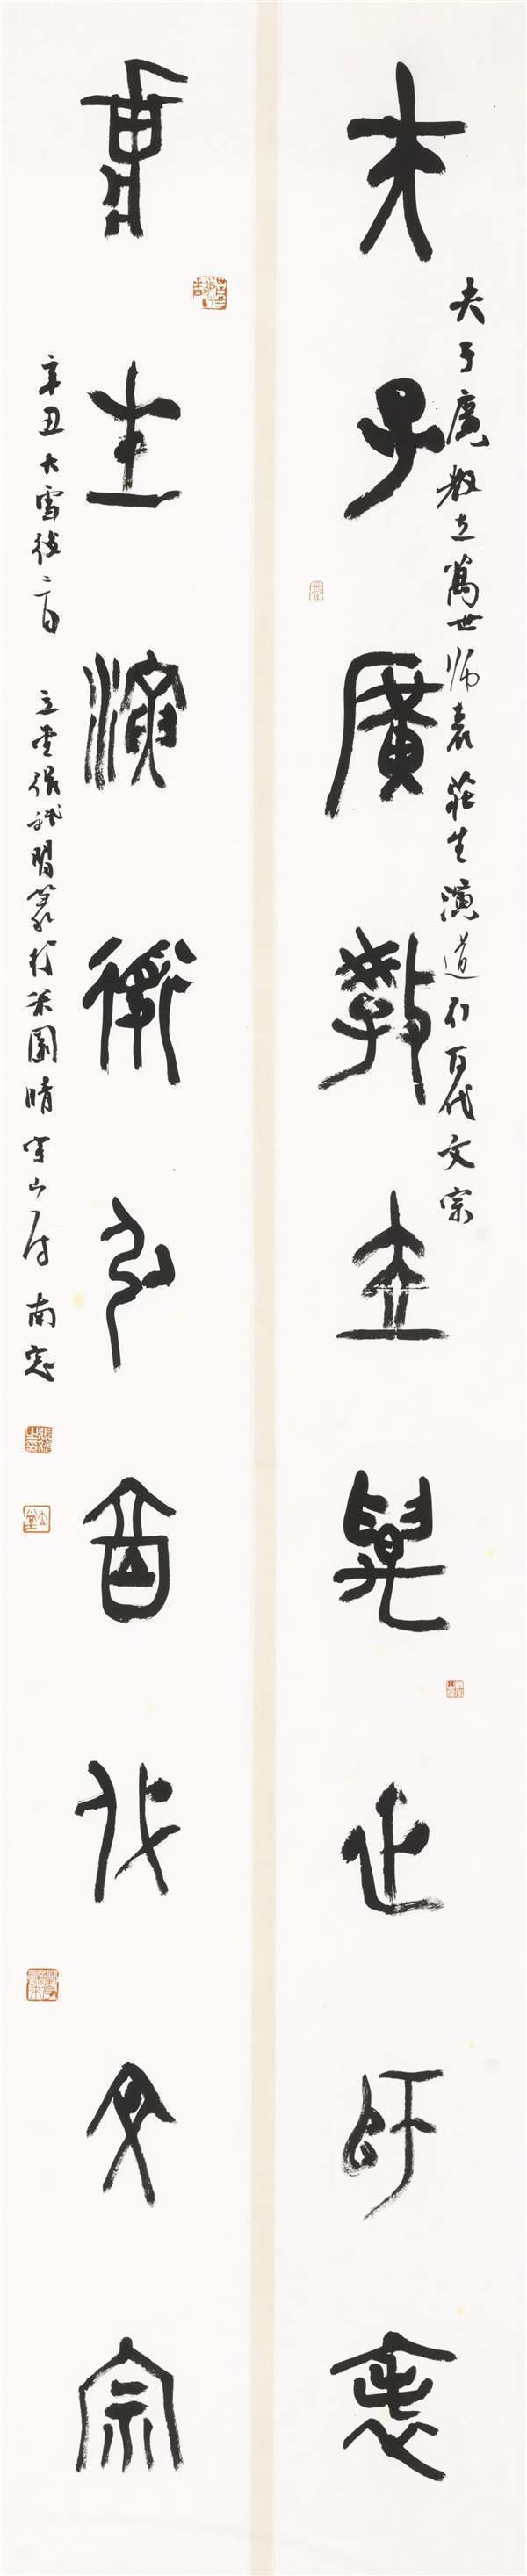 夫子廣教立萬世師表
夫子廣教立萬世師表莊生演道引百代文宗
莊生演道引百代文宗
辛丑大雪後二百
立堂張武明篆於米園晴雪山房南窓